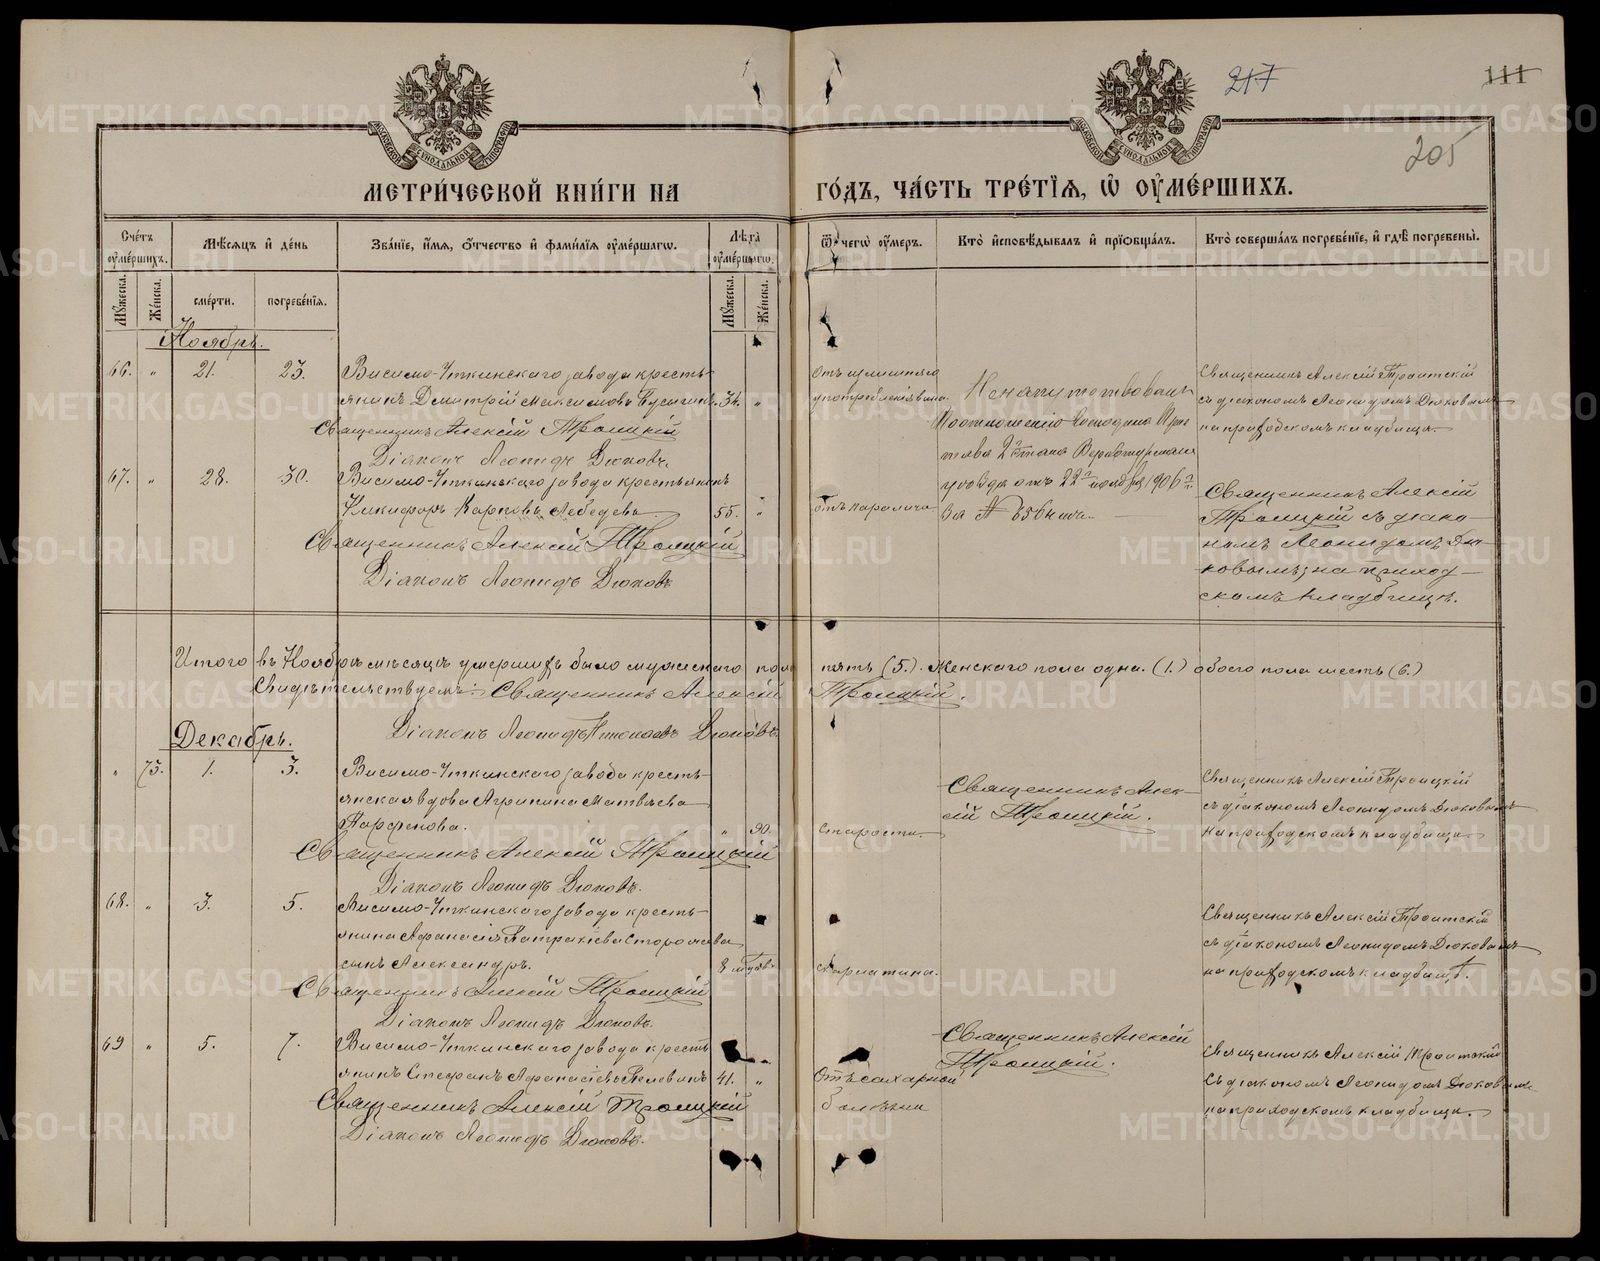 217
111
205
МОСКОВСКОЙ СѴНОДАЛЬНОЙ ТИПОГРАФІИ
МОСКОВСКОЙ СѴНОДАЛЬНОЙ ТИПОГРАФІИ
МЕТРИ́ЧЕСКОЙ КНИ́ГИ НА
ГО́ДЪ, ЧА́СТЬ ТРЕ́ТІѦ, Ѡ҆ ОУ҆МЕ́РШИХЪ.
Сче́тъ оу҆ме́ршихъ.
Мѣ́сѧцъ и҆ де́нь
Зва́нїе, и҆́мѧ, ѻ҆́тчество и҆ фами́лїѧ оу҆ме́ршагѡ.
Лѣ́та оу҆ме́ршагѡ.
Ѿ чегѡ̀ оу҆́меръ.
Кто̀ и҆сповѣ́дывалъ и҆ прїѡбща́лъ.
Кто̀ соверша́лъ погребе́нїе, и҆ гдѣ̀ погребены̀.
Мꙋ́жеска.
Же́нска.
сме́рти.
погребе́нїѧ.
Мꙋ́жеска.
Же́нска.
Ноябрь.
66. " 21. 23. Висимо-Уткинскаго завода кресть-
янинъ Дмитрій Максимовъ Бусыгинъ. 34. "
Священникъ Алексій Троицкій
Діаконъ Леонидъ Дюковъ.
отъ излишняго
употребленія вина.
Не напутствованъ
По отношенію Господина Прис
тава 2го стана Верхотурскаго
уѣзда отъ 22го ноября 1906 г.
за №
Священникъ Алексій Троитскій
съ діакономъ Леонидомъ Дюковымъ
на приходскомъ кладбищѣ.
67. " 28. 30. Висимо-Уткинскаго завода крестьянинъ
Никифоръ Карповъ Лебедевъ 55. "
Священникъ Алексій Троицкій
Діаконъ Леонидъ Дюковъ
отъ паралича
Священникъ Алексій
Троицкій съ діако
номъ Леонидомъ Дю-
ковымъ, на приход-
скомъ кладбищѣ.
Итого въ Ноябрѣ мѣсяцѣ умершихъ было мужескаго пола пять (5.). женскаго пола одна. (1.) обоего пола шесть (6.)
Свидѣтельствуемъ: Священникъ Алексій Троицкій.
Діаконъ Леонидъ Николаевъ Дюковъ.
Декабрь.
" 73. 1. 3. Висимо-Уткинскаго завода кресть-
янская вдова Агрипина Матвѣева
Парфенова. " 90.
Священникъ Алексій Троицкій
Діаконъ Леонидъ Дюковъ.
старости.
Священникъ Алек-
сій Троицкій.
Священникъ Алексій Троицкій
съ діакономъ Леонидомъ Дюковымъ
на приходскомъ кладбищѣ
68. " 3. 5. Висимо-Уткинскаго завода кресть-
янина Афанасія Патракіева Сторожева
сынъ Александръ. 8 мѣсяв.
Священникъ Алексій Троицкій
Діаконъ Леонидъ Дюковъ.
скарлатина.
Священникъ Алексій Троитскій
съ діакономъ Леонидомъ Дюковымъ
на приходскомъ кладбищѣ.
69 " 5. 7. Висимо-Уткинскаго завода кресть
янинъ Стефанъ Афанасіевъ 41. "
Священникъ Алексій Троицкій
Діаконъ Леонидъ Дюковъ.
Отъ сахарной
болѣзни
Священникъ Алексій
Троицкій.
Священникъ Алексій Троитскій
съ діакономъ Леонидомъ Дюковымъ
на приходскомъ кладбищѣ.
METRIKI.GASO-URAL.RU